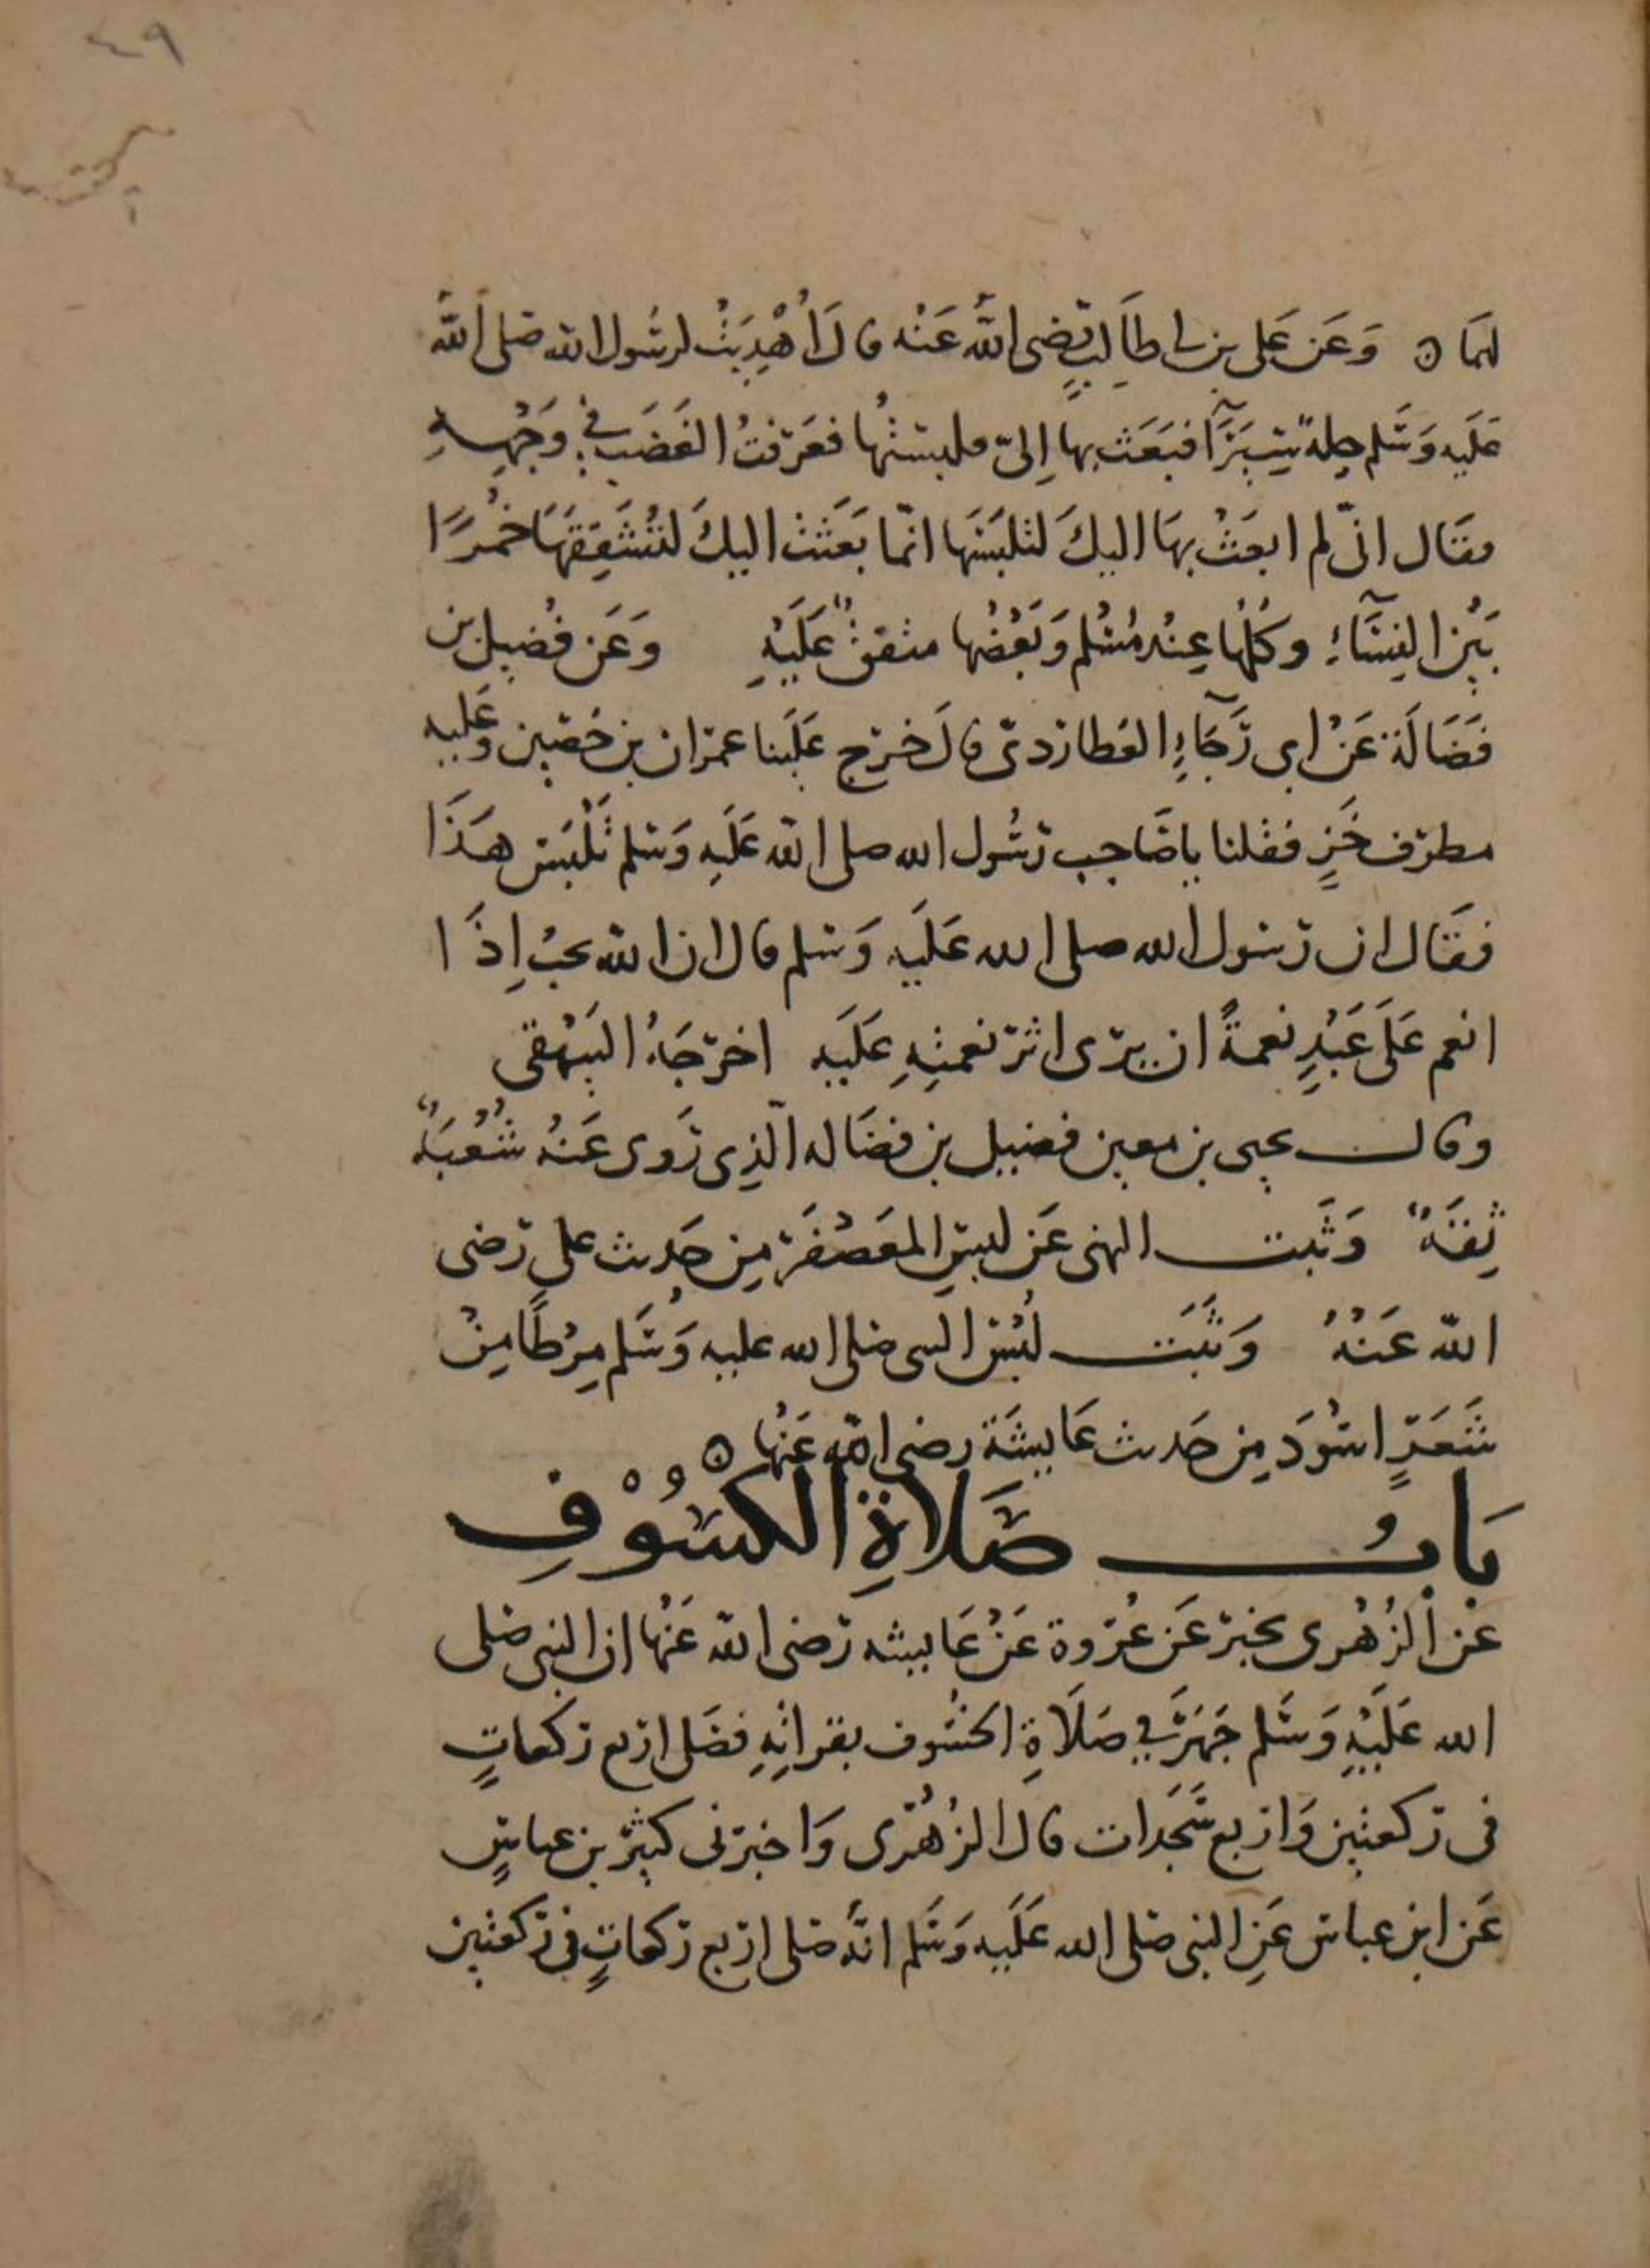 ٤٩
لهما ه وَعَن عَلى بن ابى طَالِبٍ رضى اللهُ عَنْه قالَ أُهْدِيَتْ لرسُول الله صَلى الله
عَلَيه وَسَلم حلةٌ سِيَرَآءَ فبَعَث بها اِلىّ فلبستُها فعَرفتُ الغَضَب فِى وَجْهِهِ
فقَال انّى لم ابعَثْ بهَا اليكَ لتلبَسَهَا انّما بَعَثتُ اليكَ لتُشَقِقَهَا خُمُرًا
بَيْنَ النِسَآءِ وكُلُها عِنْد مُسْلم وَبَعْضُها متفقٌ عَلَيْهِ وَعَن فُضيل بن
فَضَالَة عَنْ ابى رَجَآءٍ العُطاردىّ قالَ خرَج عَلَينا عمرَان بن حُصَين وَعَليه
مطرَف خَزٍّ فقلنا ياصَاحِب رسُول الله صلى الله عَلَيهِ وَسَلم تَلْبَس هَذَا
فقَال ان رسُول الله صلى الله عَلَيه وَسَلم قال ان الله يحبُ اِذَا
انعم عَلَى عَبْدٍ نعمةً ان يرَى اثر نعمتِهِ عَلَيه اخرجَهُ البَيْهَقى
وقال يحيى بن معين فضيل بن فضَاله الّذِى رَوى عَنهُ شُعْبَةُ
ثِقَةٌ وَثبَت النهى عَن لبسِ المعَصْفَر مِن حَديث على رَضى
الله عَنْهُ وَثَبَت لُبْسُ النبى صَلى الله عليه وَسَلم مِرْطًا مِنْ
شَعَرٍ اسْوَدَ مِن حَديث عَايشَة رضى الله عَنْها ه
بَابُ صَلَاةِ الْكسُوْفِ
عَن الزُهْرى يخبر عَن عُروة عَنْ عَايشه رَضى الله عَنْها ان النبى صَلى
الله عَلَيْهِ وَسَلم جَهَرَ فى صَلَاةِ الخسُوف بقراتِهِ فصَلى اربع ركعاتٍ
فى ركعتين وَاربع سَجَدات قال الزُهْرى وَاخبرَنى كثير بن عباسٍ
عَن ابن عباس عَنِ النبى صَلى الله عَلَيه وَسَلم انَهُ صَلى اربع ركعاتٍ فى ركعتين